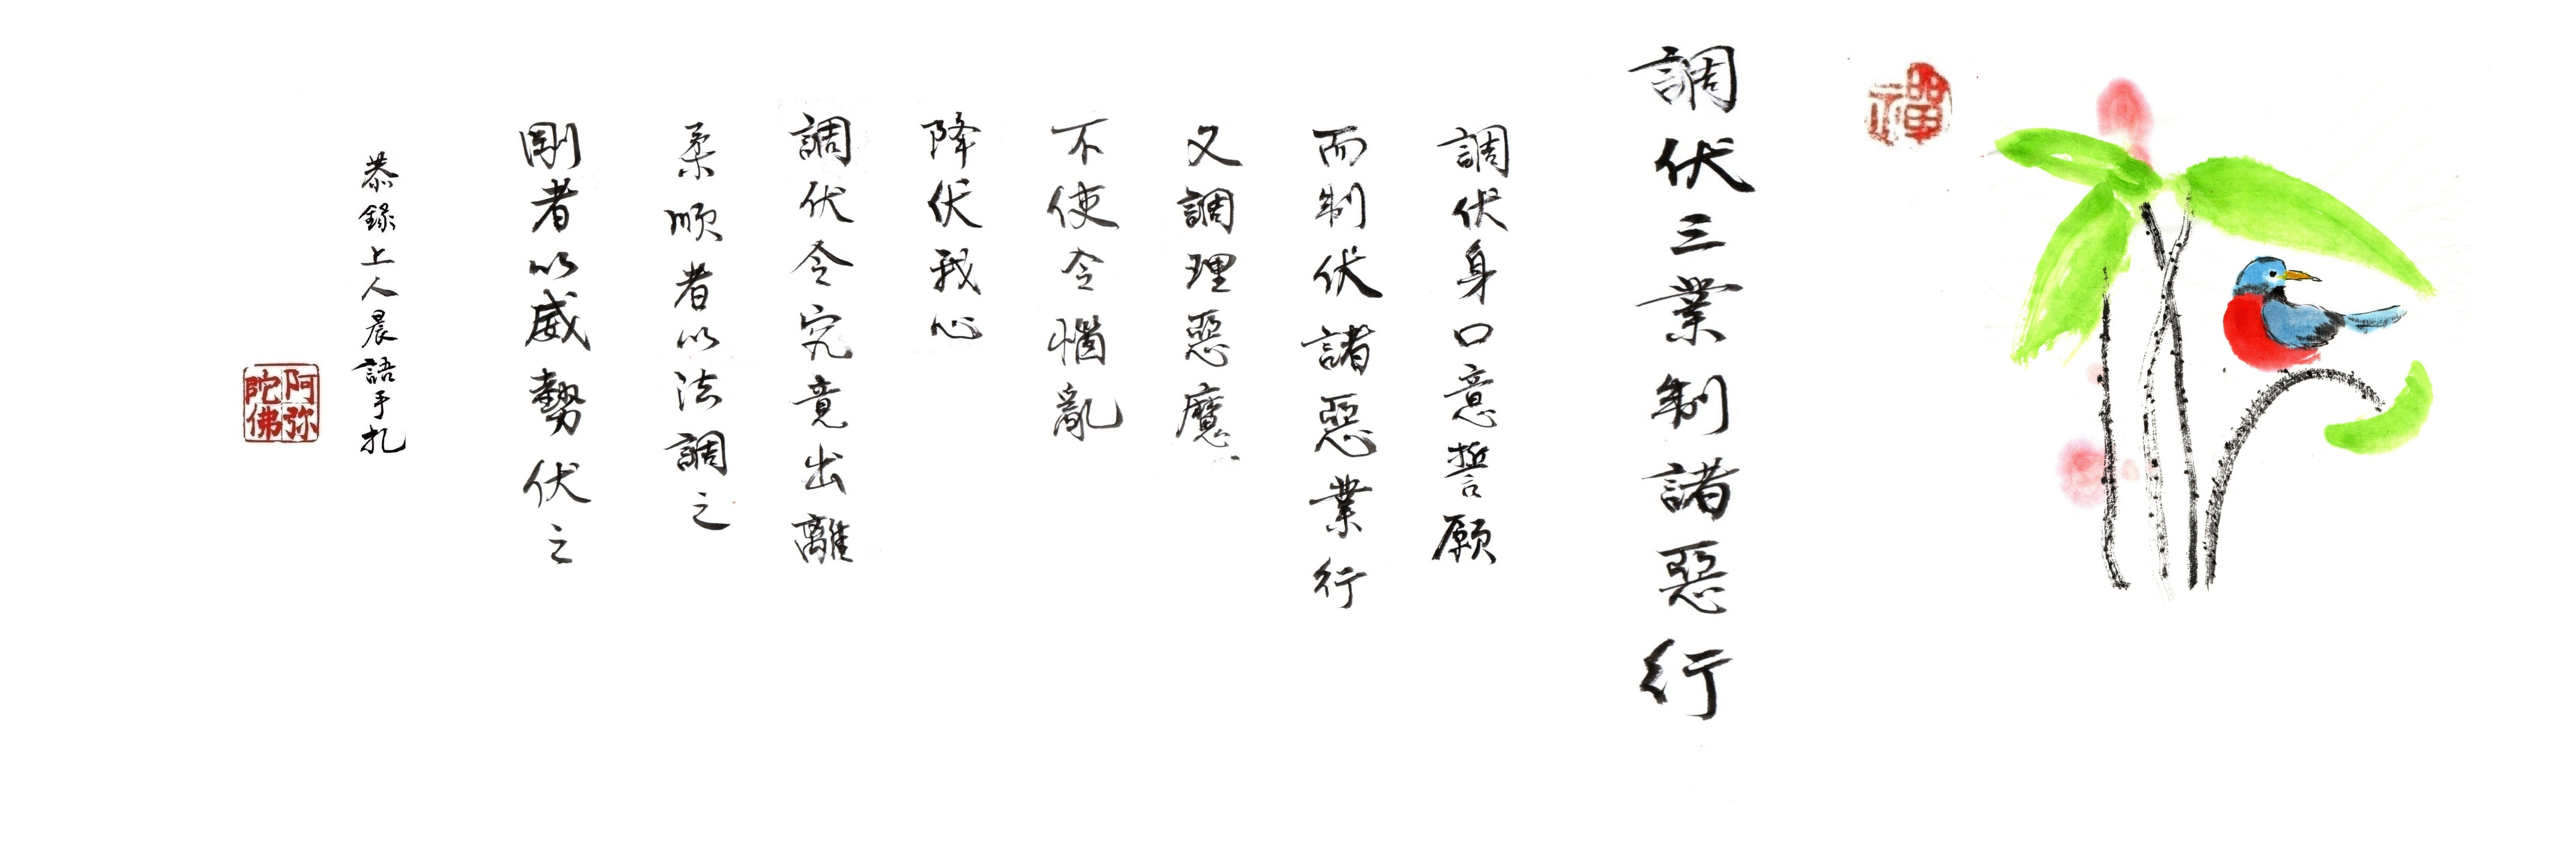 禪
調伏三業制諸惡行
調伏身口意誓願
而制伏諸惡業行
又調理惡魔
不使令惱亂
降伏我心
調伏令究竟出離
柔順者以法調之
剛者以威勢伏之
恭錄上人晨語手扎
阿弥陀佛